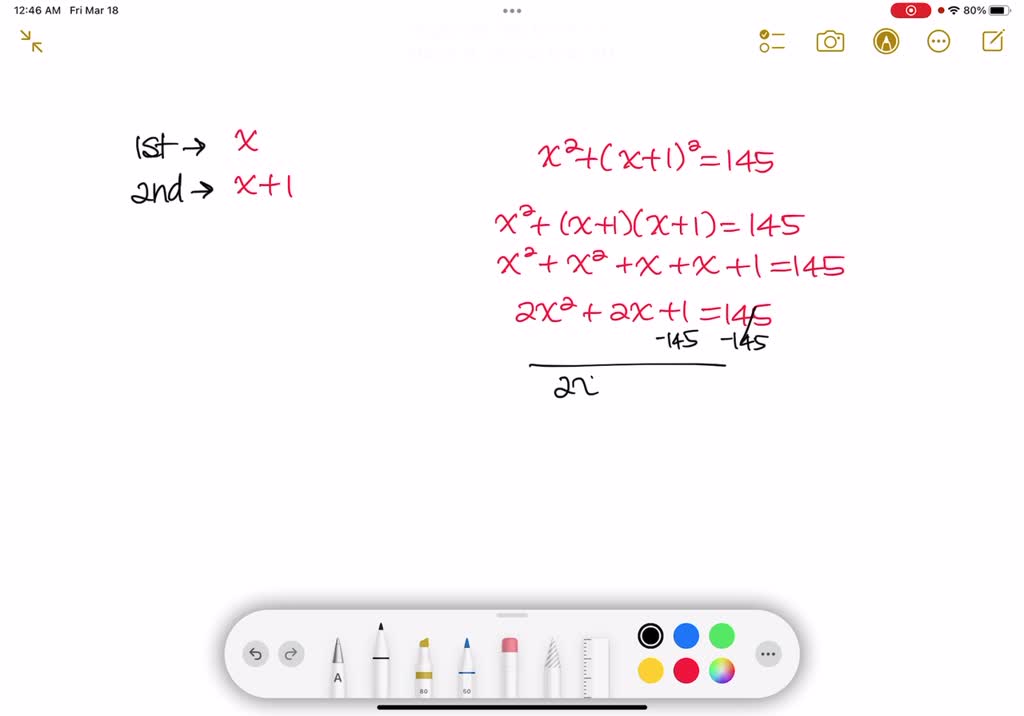 12:46 AM Fri Mar 18
80%
1st → x
2nd → x+1
x²+(x+1)²=145
x²+(x+1)(x+1)=145
x²+x²+x+x+1=145
2x²+2x+1=145
-145 -145
2x
A
80
50